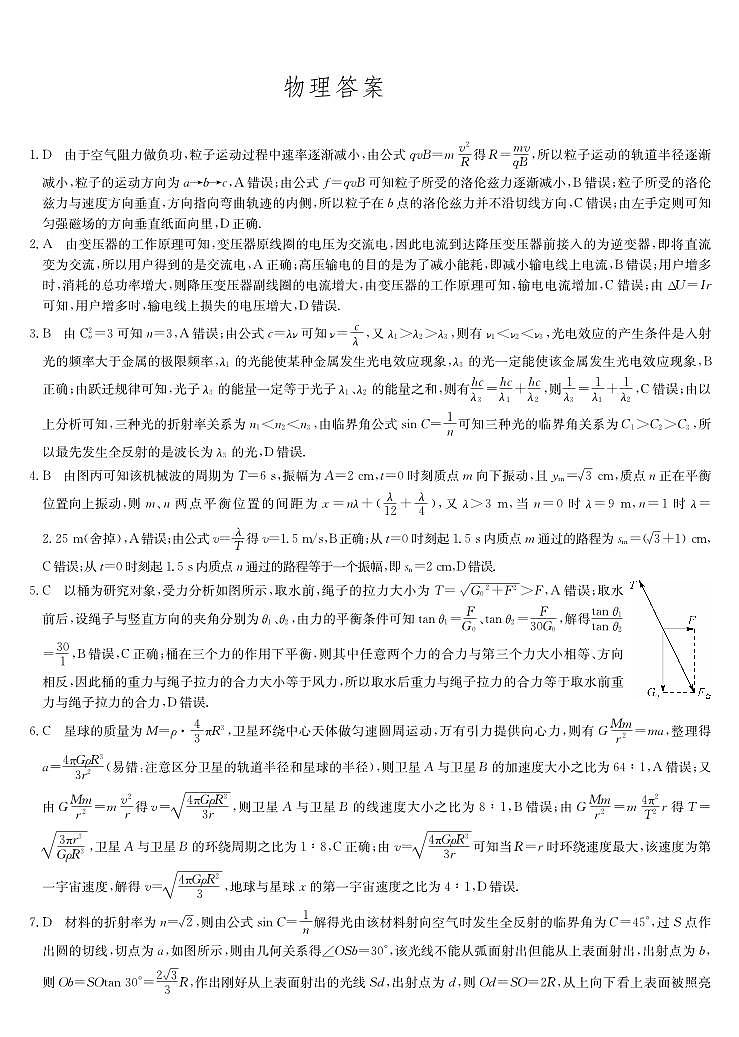 物理答案
1. D　由于空气阻力做负功,粒子运动过程中速率逐渐减小,由公式 qvB=m v²/R 得 R=mv/qB,所以粒子运动的轨道半径逐渐
减小,粒子的运动方向为 a→b→c,A 错误;由公式 f=qvB 可知粒子所受的洛伦兹力逐渐减小,B 错误;粒子所受的洛伦
兹力与速度方向垂直,方向指向弯曲轨迹的内侧,所以粒子在 b 点的洛伦兹力并不沿切线方向,C 错误;由左手定则可知
匀强磁场的方向垂直纸面向里,D 正确.
2. A　由变压器的工作原理可知,变压器原线圈的电压为交流电,因此电流到达降压变压器前接入的为逆变器,即将直流
变为交流,所以用户得到的是交流电,A 正确;高压输电的目的是为了减小能耗,即减小输电线上电流,B 错误;用户增多
时,消耗的总功率增大,则降压变压器副线圈的电流增大,由变压器的工作原理可知,输电电流增加,C 错误;由 ΔU=Ir
可知,用户增多时,输电线上损失的电压增大,D 错误.
3. B　由 C²ₙ=3 可知 n=3,A 错误;由公式 c=λν 可知 ν=c/λ,又 λ₁>λ₂>λ₃,则有 ν₁<ν₂<ν₃,光电效应的产生条件是入射
光的频率大于金属的极限频率,λ₁ 的光能使某种金属发生光电效应现象,λ₃ 的光一定能使该金属发生光电效应现象,B
正确;由跃迁规律可知,光子 λ₃ 的能量一定等于光子 λ₁、λ₂ 的能量之和,则有 hc/λ₃=hc/λ₁+hc/λ₂,则 1/λ₃=1/λ₁+1/λ₂,C 错误;由以
上分析可知,三种光的折射率关系为 n₁<n₂<n₃,由临界角公式 sin C=1/n 可知三种光的临界角关系为 C₁>C₂>C₃,所
以最先发生全反射的是波长为 λ₃ 的光,D 错误.
4. B　由图丙可知该机械波的周期为 T=6 s,振幅为 A=2 cm,t=0 时刻质点 m 向下振动,且 yₘ=√3 cm,质点 n 正在平衡
位置向上振动,则 m、n 两点平衡位置的间距为 x=nλ+(λ/12+λ/4),又 λ>3 m,当 n=0 时 λ=9 m,n=1 时 λ=
2.25 m(舍掉),A 错误;由公式 v=λ/T 得 v=1.5 m/s,B 正确;从 t=0 时刻起 1.5 s 内质点 m 通过的路程为 sₘ=(√3+1) cm,
C 错误;从 t=0 时刻起 1.5 s 内质点 n 通过的路程等于一个振幅,即 sₙ=2 cm,D 错误.
5. C　以桶为研究对象,受力分析如图所示,取水前,绳子的拉力大小为 T=√(G₀²+F²)>F,A 错误;取水
前后,设绳子与竖直方向的夹角分别为 θ₁、θ₂,由力的平衡条件可知 tan θ₁=F/G₀、tan θ₂=F/30G₀,解得 tan θ₁/tan θ₂
=30/1,B 错误,C 正确;桶在三个力的作用下平衡,则其中任意两个力的合力与第三个力大小相等、方向
相反,因此桶的重力与绳子拉力的合力大小等于风力,所以取水后重力与绳子拉力的合力等于取水前重
力与绳子拉力的合力,D 错误.
T
F
G₀
F合
6. C　星球的质量为 M=ρ·4/3 πR³,卫星环绕中心天体做匀速圆周运动,万有引力提供向心力,则有 G Mm/r²=ma,整理得
a=4πGρR³/3r²(易错:注意区分卫星的轨道半径和星球的半径),则卫星 A 与卫星 B 的加速度大小之比为 64∶1,A 错误;又
由 G Mm/r²=m v²/r 得 v=√(4πGρR³/3r),则卫星 A 与卫星 B 的线速度大小之比为 8∶1,B 错误;由 G Mm/r²=m 4π²/T² r 得 T=
√(3πr³/GρR³),卫星 A 与卫星 B 的环绕周期之比为 1∶8,C 正确;由 v=√(4πGρR³/3r) 可知当 R=r 时环绕速度最大,该速度为第
一宇宙速度,解得 v=√(4πGρR²/3),地球与星球 x 的第一宇宙速度之比为 4∶1,D 错误.
7. D　材料的折射率为 n=√2,则由公式 sin C=1/n 解得光由该材料射向空气时发生全反射的临界角为 C=45°,过 S 点作
出圆的切线,切点为 a,如图所示,则由几何关系得∠OSb=30°,该光线不能从弧面射出但能从上表面射出,出射点为 b,
则 Ob=SOtan 30°=2√3/3 R,作出刚好从上表面射出的光线 Sd,出射点为 d,则 Od=SO=2R,从上向下看上表面被照亮